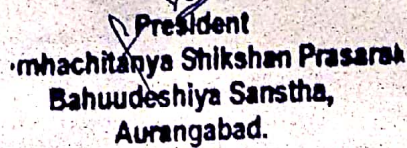 President
mhachitanya Shikshan Prasarak
Bahuudeshiya Sanstha,
Aurangabad.